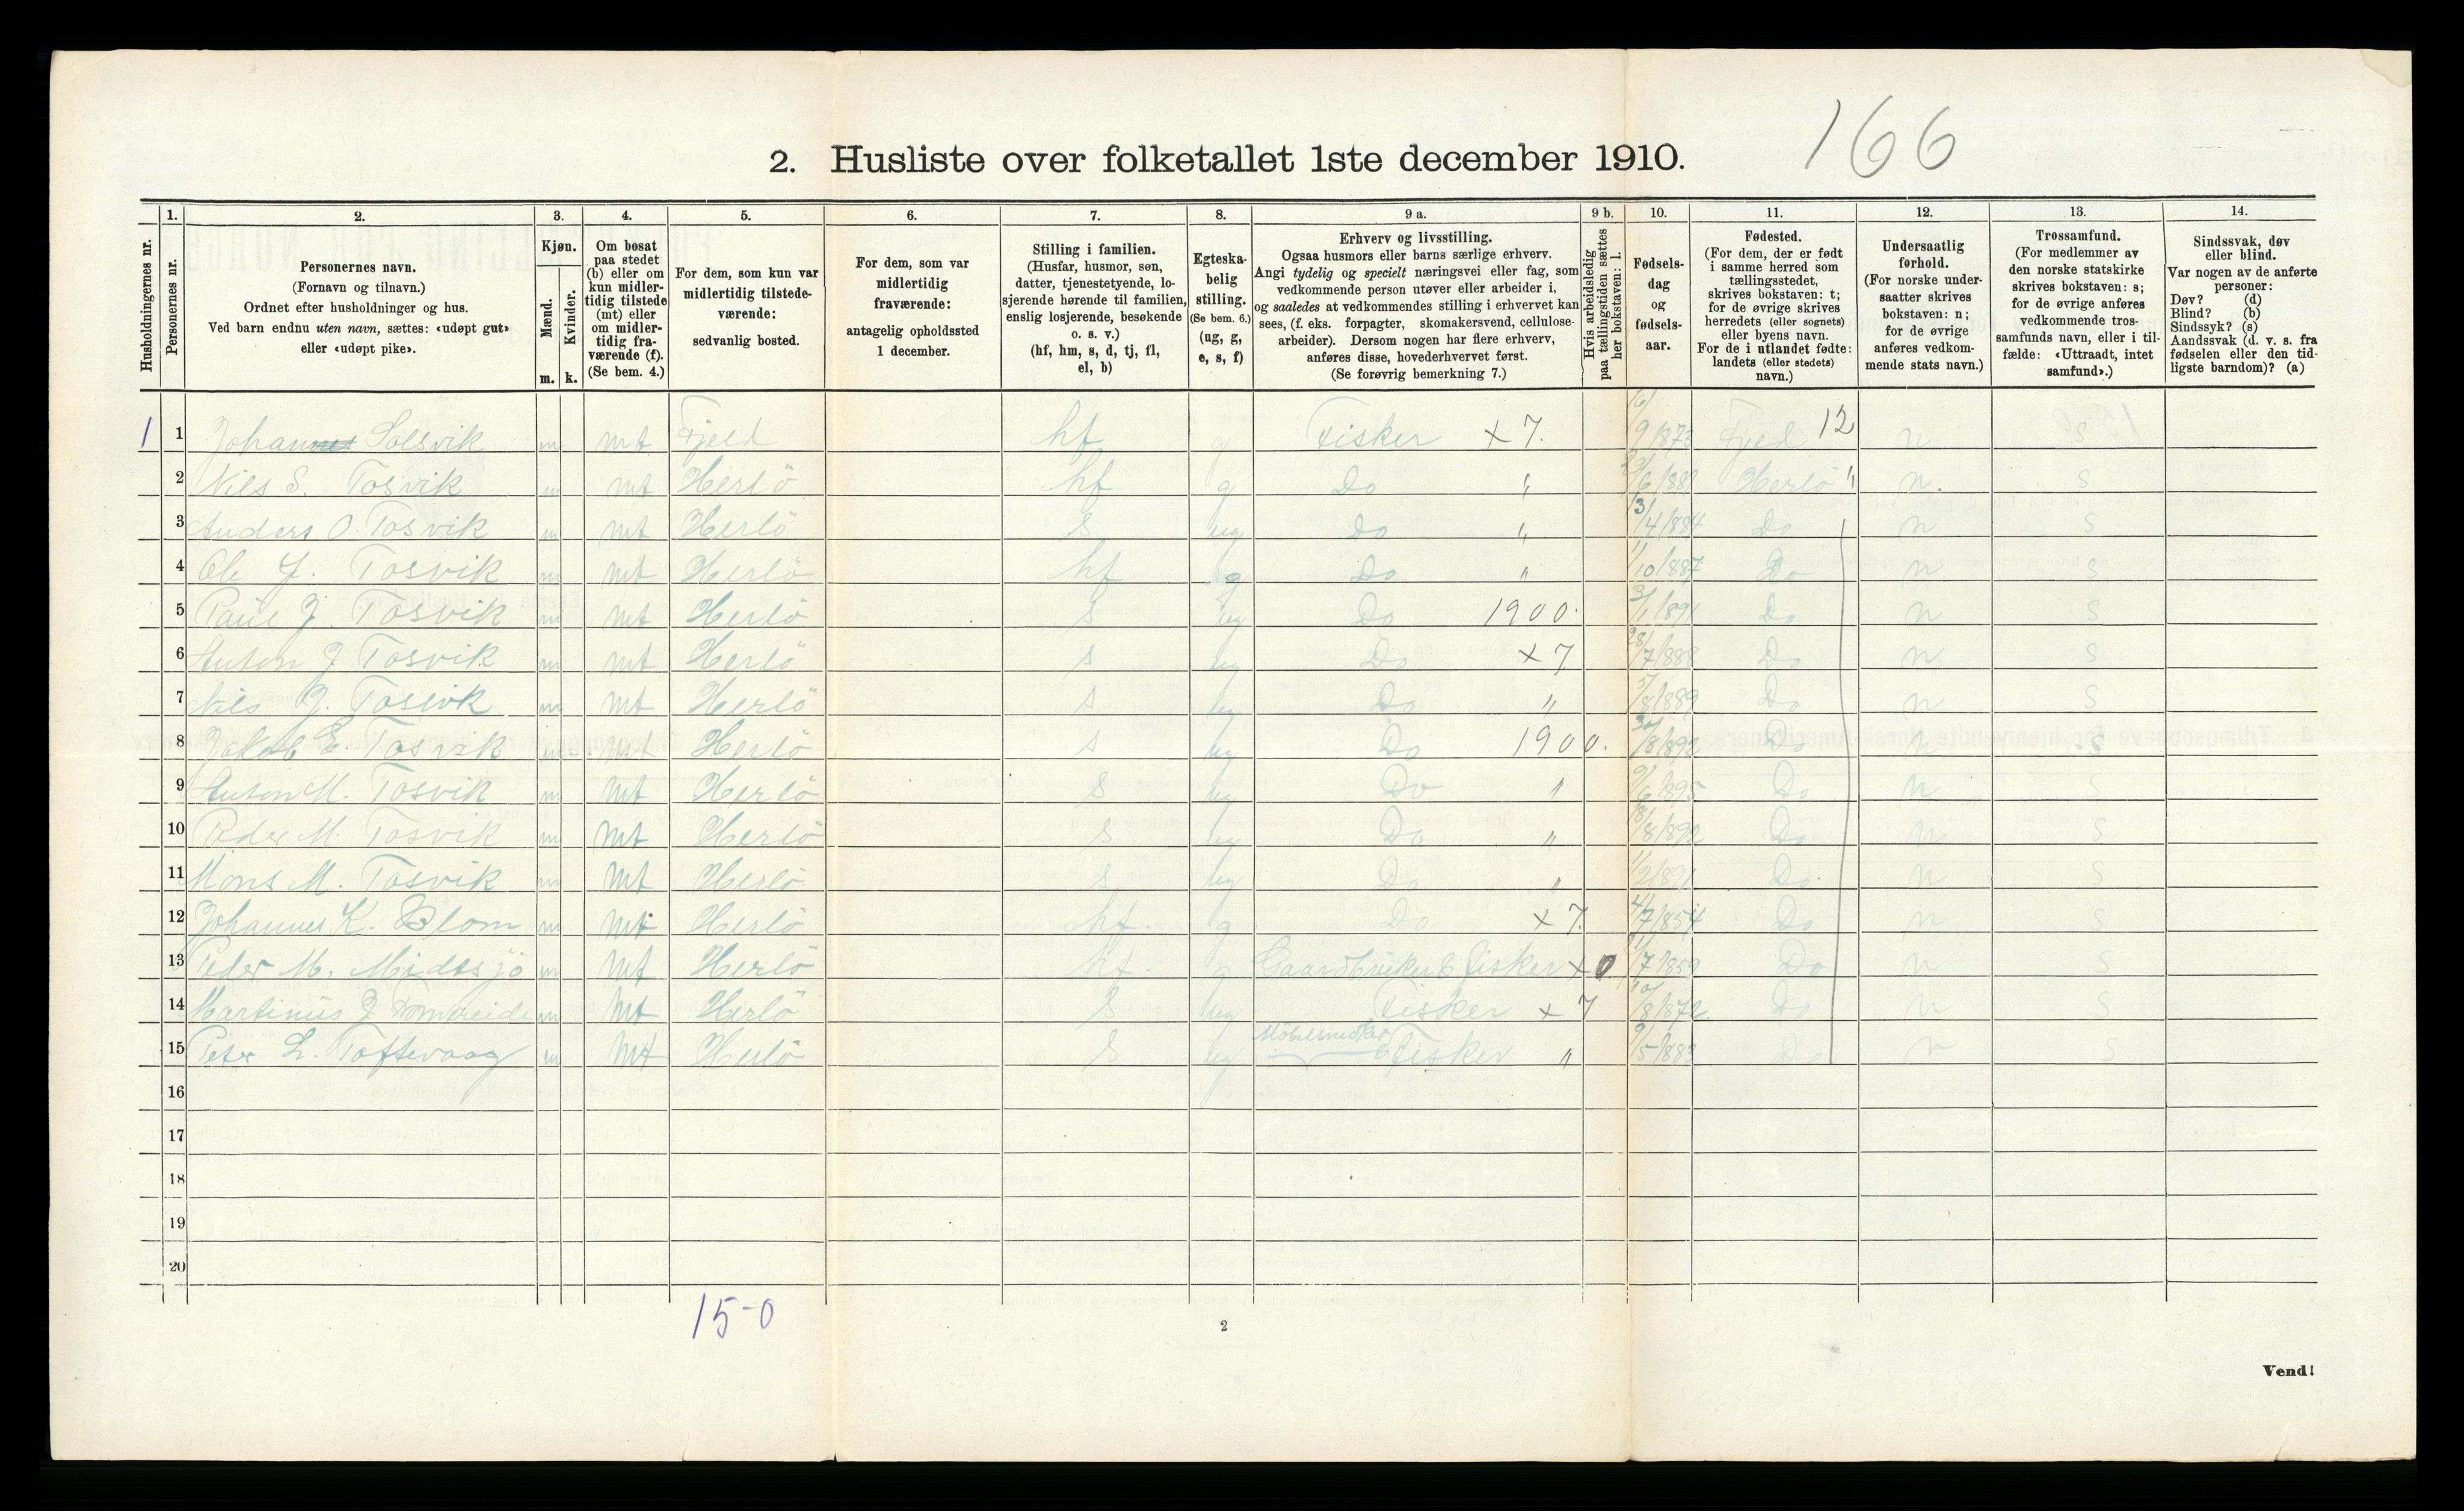 166
2. Husliste over folketallet 1ste december 1910.
Husholdningernes nr.
1. Personernes nr.
2. Personernes navn.
(Fornavn og tilnavn.)
Ordnet efter husholdninger og hus.
Ved barn endnu uten navn, sættes: «udøpt gut»
eller «udøpt pike».
3. Kjøn.
Mænd. Kvinder.
m. k.
4. Om bosat
paa stedet
(b) eller om
kun midler-
tidig tilstede
(mt) eller
om midler-
tidig fra-
værende (f).
(Se bem. 4.)
5. For dem, som kun var
midlertidig tilstede-
værende:
sedvanlig bosted.
6. For dem, som var
midlertidig
fraværende:
antagelig opholdssted
1 december.
7. Stilling i familien.
(Husfar, husmor, søn,
datter, tjenestetyende, lo-
sjerende hørende til familien,
enslig losjerende, besøkende
o. s. v.)
(hf, hm, s, d, tj, fl,
el, b)
8. Egteska-
belig
stilling.
(Se bem. 6.)
(ug, g,
e, s, f)
9 a. Erhverv og livsstilling.
Ogsaa husmors eller barns særlige erhverv.
Angi tydelig og specielt næringsvei eller fag, som
vedkommende person utøver eller arbeider i,
og saaledes at vedkommendes stilling i erhvervet kan
sees, (f. eks. forpagter, skomakersvend, cellulose-
arbeider). Dersom nogen har flere erhverv,
anføres disse, hovederhvervet først.
(Se forøvrig bemerkning 7.)
9 b. Hvis arbeidsledig
paa tællingstiden sættes
her bokstaven: l.
10. Fødsels-
dag
og
fødsels-
aar.
11. Fødested.
(For dem, der er født
i samme herred som
tællingsstedet,
skrives bokstaven: t;
for de øvrige skrives
herredets (eller sognets)
eller byens navn.
For de i utlandet fødte:
landets (eller stedets)
navn.)
12. Undersaatlig
forhold.
(For norske under-
saatter skrives
bokstaven: n;
for de øvrige
anføres vedkom-
mende stats navn.)
13. Trossamfund.
(For medlemmer av
den norske statskirke
skrives bokstaven: s;
for de øvrige anføres
vedkommende tros-
samfunds navn, eller i til-
fælde: «Uttraadt, intet
samfund».)
14. Sindssvak, døv
eller blind.
Var nogen av de anførte
personer:
Døv? (d)
Blind? (b)
Sindssyk? (s)
Aandssvak (d. v. s. fra
fødselen eller den tid-
ligste barndom)? (a)
1 1 Johannes Solsvik m mt Fjeld hf g Fisker x 7. 9/873 Fjeld 12 n s
2 Nils S. Tosvik m mt Herlö hf g Do " Herlö " n. s
3 Anders O. Tosvik m mt Herlö s ug Do " 4/884 Do n s
4 Ole J. Tosvik m mt Herlö hf g Do " 10/887 Do n s
5 Paul J. Tosvik m mt Herlö s ug Do 1900. 1/891 Do n s
6 Anton J Tosvik m mt Herlö s ug Do x 7 28/7/888 Do n s
7 Nils J. Tosvik m mt Herlö s ug Do " 8/889 Do n s
8 Jakob E. Tosvik m mt Herlö s ug Do 1900. 8/892 Do n s
9 Anton M. Tosvik m mt Herlö s ug Do " 9/6/895 Do n s
10 Peder M. Tosvik m mt Herlö s ug Do " 8/892 Do n s
11 Mons M. Tosvik m mt Herlö s ug Do " 2/891 Do n s
12 Johannes K. Blom m mt Herlö hf. g Do x 7. 4/7/854 Do n s
13 Peder M. Midtsjö m mt Herlö hf. g Gaardbruker & fisker x 0 7/859 Do n s
14 Martinus J m mt Herlö s ug Fisker x 7 10/8/872 Do n s
15 Peter L. Toftevaag m mt Herlö s ug Möbelsnedker & Fisker " 9/5/883 Do n s
16
17
18
19
20
15-0
2
Vend!